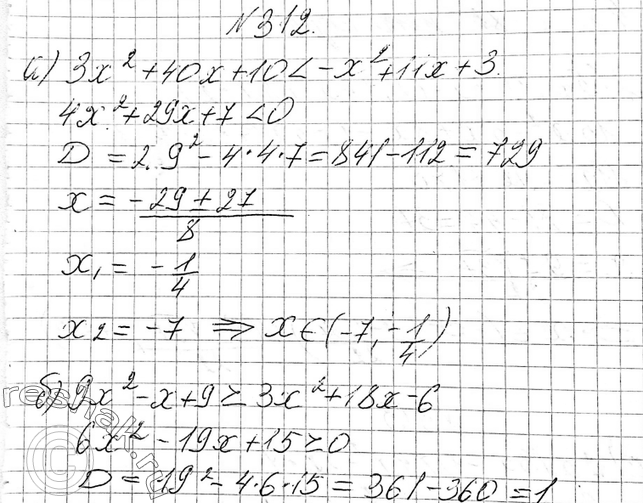 N312.
а) 3x² + 40x + 10 < -x² + 11x + 3.
4x² + 29x + 7 < 0
D = 2.9² - 4·4·7 = 841 - 112 = 729
x = (-29 ± 27)/8
x₁ = -1/4
x₂ = -7 ⇒ x ∈ (-7; -1/4)
б) 9x² - x + 9 ≥ 3x² + 18x - 6
6x² - 19x + 15 ≥ 0
D = 19² - 4·6·15 = 361 - 360 = 1
reshak.ru